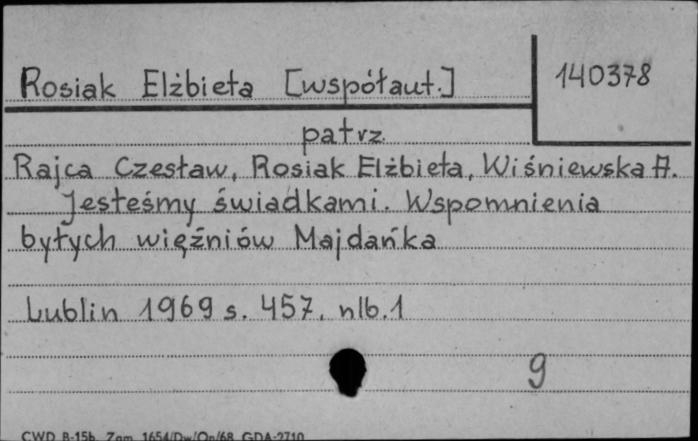 Rosiak Elżbieta [współaut.]
140378
patrz
Rajca Czesław, Rosiak Elżbieta, Wiśniewska A.
Jesteśmy świadkami. Wspomnienia
byłych więźniów Majdańka
Lublin 1969 s. 457, nlb.1
9
CWD B-15b Zam. 1654/Dw/Op/68 GDA-2710